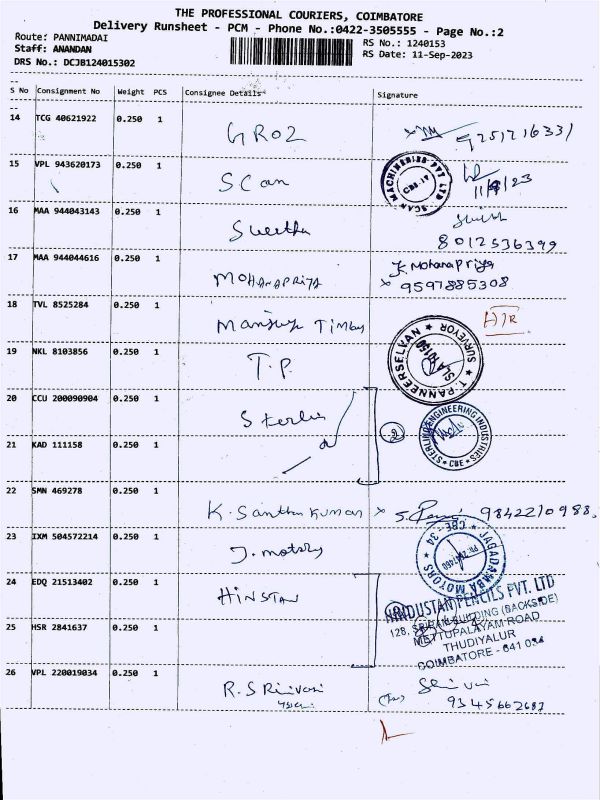 THE PROFESSIONAL COURIERS, COIMBATORE
Delivery Runsheet - PCM - Phone No.:0422-3505555 - Page No.:2
Route: PANNIMADAI
RS No.: 1240153
Staff: ANANDAN
RS Date: 11-Sep-2023
DRS No.: DCJB124015302
S No Consignment No Weight PCS Consignee Details Signature
14 TCG 40621922 0.250 1
GROZ
15 VPL 943620173 0.250 1
Scan
SCAN MACHINERIES PVT LTD CBE-17
11/9/23
16 MAA 944043143 0.250 1
Swetha
8012536399
17 MAA 944044616 0.250 1
MOHANAPRIYA
K. Mohanapriya
9597885308
18 TVL 8525284 0.250 1
19 NKL 8103856 0.250 1
T.P.
T. PANNEERSELVAN SURVEYOR
20 CCU 200090904 0.250 1
2
STERLING ENGINEERING INDUSTRIES CBE
21 KAD 111158 0.250 1
22 SMN 469278 0.250 1
K. Santhakumar
9842210988
23 IXM 504572214 0.250 1
J. motors
JAGADAMBA MOTORS CBE-34
24 EDQ 21513402 0.250 1
HINSTAN
HINDUSTAN PENCILS PVT. LTD
128, BUILDING (BACKSIDE)
METTUPALAYAM ROAD
THUDIYALUR
COIMBATORE - 641 034
25 HSR 2841637 0.250 1
26 VPL 220019034 0.250 1
R. Srinivasi
9345662687